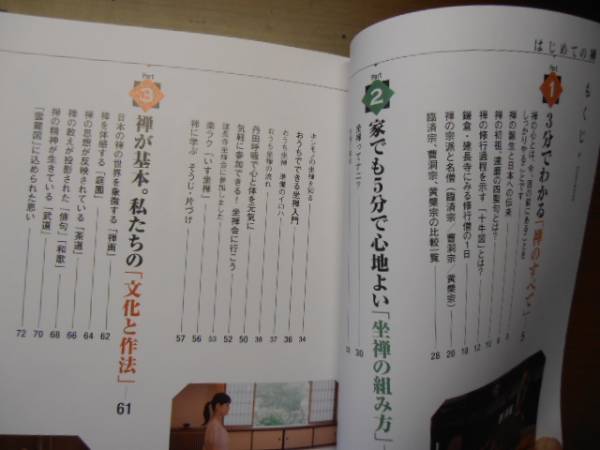 はじめての禅
もくじ
Part
1
3分でわかる「禅のすべて」 5
禅の誕生と日本への伝来
禅の初祖、達磨の四聖句とは? 8
禅の修行過程を示す「十牛図」とは? 10
鎌倉・建長寺にみる修行僧の1日
禅の宗派と名僧(臨済宗/曹洞宗/黄檗宗) 20
臨済宗、曹洞宗、黄檗宗の比較一覧 28
Part
2
家でも5分で心地よい「坐禅の組み方」
坐禅ってナニ? 30
おうちでできる坐禅入門
おうち坐禅 準備のイロハ 36
おうち坐禅の流れ 38
丹田呼吸で心と体を元気に 50
気軽に参加できる!坐禅会に行こう 52
建長寺坐禅会に参加しました 53
楽ラク「いす坐禅」 56
禅に学ぶ そうじ・片づけ 57
Part
3
禅が基本。私たちの「文化と作法」 61
日本の禅の世界を象徴する「禅画」 62
禅を体感する「庭園」 64
禅の思想が反映されている「茶道」 66
禅の教えが投影された「俳句」「和歌」 68
禅の精神が生きている「武道」 70
「雲龍図」に込められた思い 72